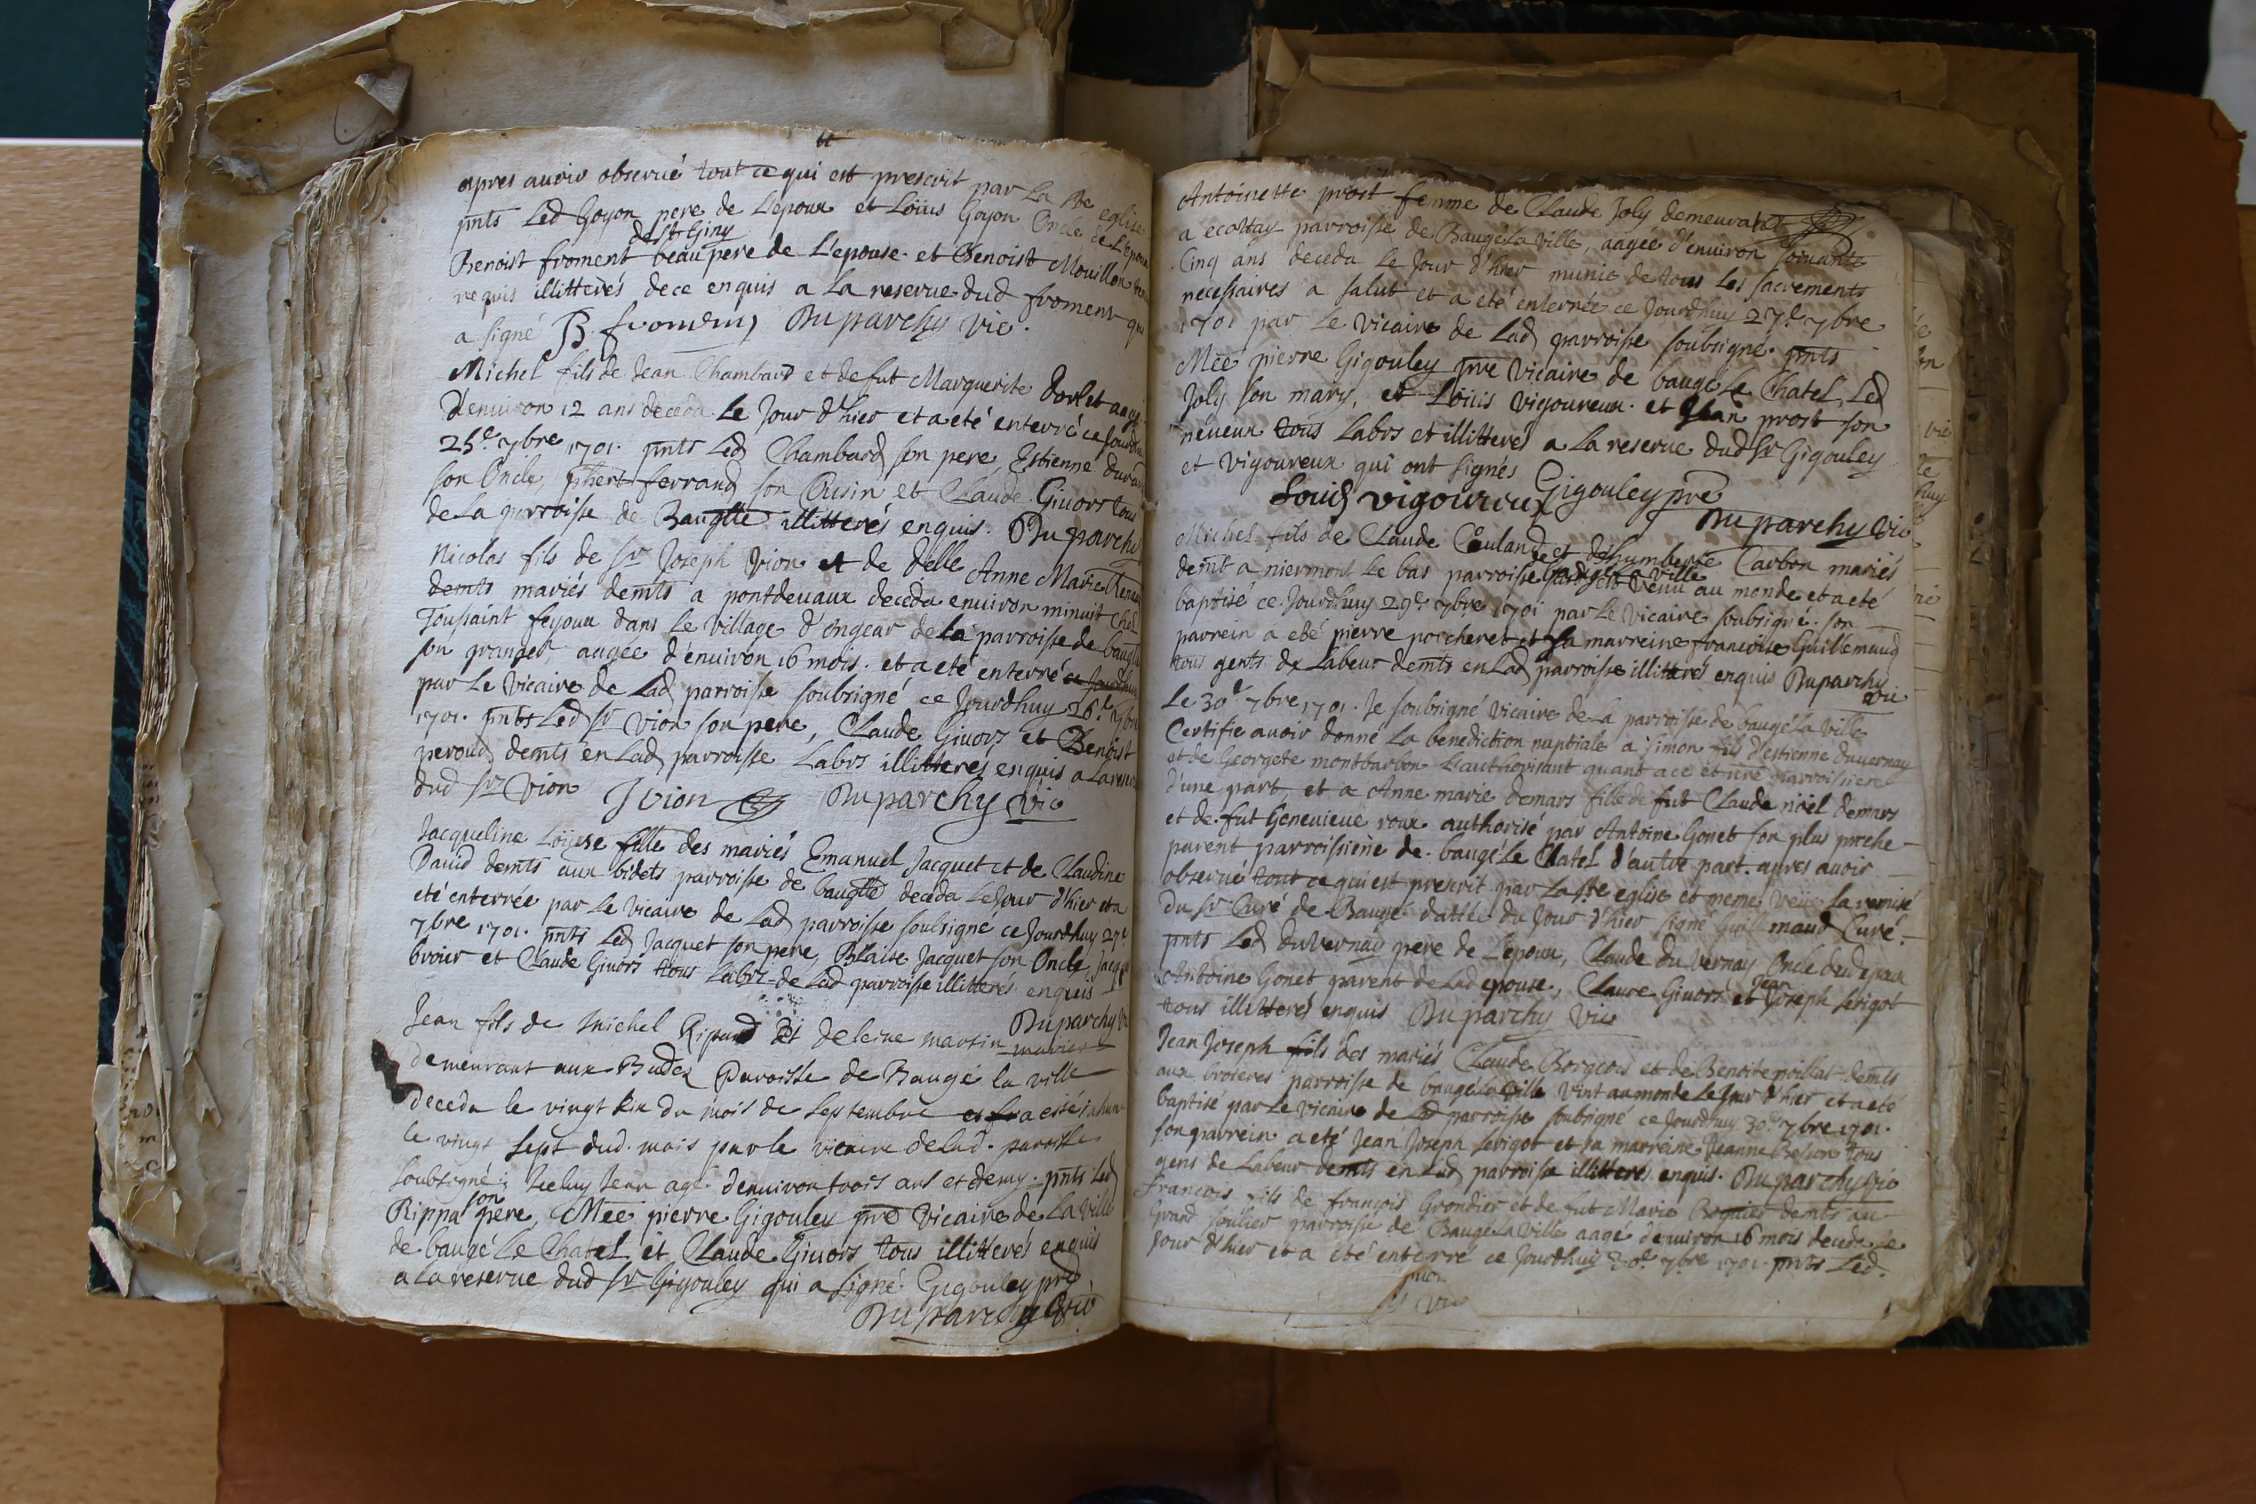 apres avoir observé tout ce qui est prescrit par La Ste eglise
pnts Led Goyon pere de L'epoux et Loüis Goyon Oncle de L'epoux
de St Giny
Benoist froment beau pere de L'epouse. et Benoist Mouillon
requis illitterés de ce enquis a La reserve dud froment qui
a signé B. froment Duparchy vic.
Michel fils de Jean Chambard et de fut Marguerite Dorlet aagé
D'environ 12 ans deceda Le Jour d'hier et a eté enterré ce Jourdhuy
25.e 7bre 1701. pnts Led Chambard son pere, Estienne
son Oncle, phert ferrand son Cusin et Claude Givors tous
de La parroisse de Baugtte illitterés enquis. Duparchy
Nicolas fils de Sr Joseph Vion et de Delle Anne Marie
demts mariés demts a pontdevaux deceda environ minuit Chés
Toussaint feyoux dans Le Village d'ongear de La parroisse de
son granger, aagée d'environ 16 mois. et a eté enterré ce Jourdhuy
par Le Vicaire de Lad parroisse soubsigné ce Jourdhuy 26.e 7bre
1701. pnts Led Sr Vion son pere, Claude Givors et Benoist
peroud demts en Lad parroisse Labrs illitteres enquis a La reserve
dud Sr Vion J Vion Duparchy Vic
Jacqueline Loüise fille des mariés Emanuel Jacquet et de Claudine
David demts aux bidets parroisse de baugtte deceda Le Jour d'hier et a
eté enterrée par Le Vicaire de Lad parroisse soubsigné ce Jourdhuy 27e
7bre 1701. pnts Led Jacquet son pere, Blaise Jacquet son Oncle,
broier et Claude Givors tous Labrs de Lad parroisse illitterés enquis
Duparchy
Jean fils de Michel Ripaud et de leine Martin mariés
demeurant aux Budes Paroisse de Baugé la ville
deceda le vingt six du mois de septembre et a esté
le vingt sept dud. mois par le vicaire de lad. paroisse
soubsigné; Iceluy Jean agé d'environ trois ans et demy. pnts Led
Rippa son pere, Mee pierre Gigouley pre Vicaire de La Ville
de baugé Le Chatel et Claude Givors tous illitterés enquis
a La reserve dud Sr Gigouley qui a signé Gigouley pre
Duparchy Vic
Antoinette prost femme de Claude Joly demeurat
a ecottay parroisse de Baugé La Ville, aagée d'environ soixante
Cinq ans deceda Le Jour d'hier munie de tous Les sacrements
necessaires a salut et a eté enterrée ce Jourdhuy 27.e 7bre
1701 par Le Vicaire de Lad parroisse soubsigné. pnts
Mee pierre Gigouley pre Vicaire de baugé Le Chatel, Led
Joly son mary, et Loüis Vigoureux. et Jean prost son
neveux tous Labrs et illitterés a La reserve dud Sr Gigouley
et Vigoureux qui ont signés Gigouley pre
Louis vigoureux
Duparchy Vic
Michel fils de Claude Couland et de humberte Carbon mariés
demt a niermont Le bas parroisse de baugé La Ville est venu au monde et a eté
baptisé ce Jourdhuy 29e 7bre 1701 par Le Vicaire soubsigné. son
parrein a eté pierre porcheret et sa marreine francoise Guillemaud
tous gents de Labeur demts en Lad parroisse illitterés enquis Duparchy
vic
Le 30e 7bre 1701. Je soubsigné Vicaire de La parroisse de baugé La Ville
Certifie avoir donné La benediction nuptiale a Simon fils d'Estienne duvernay
et de Georgete montbarbon L'authorisant quant a ce et nre parroissien
d'une part, et a Anne marie demars fille de fut Claude noël demars
et de fut Genevieve roux authorisé par Antoine Gonet son plus proche
parent parroissiene de baugé Le Chatel d'autre part. apres avoir
observé tout ce qui est prescrit par La Ste eglise et meme veüe La remise
Du Sr Curé de Baugé dattée du Jour d'hier signé Guillemaud Curé.
pnts Led duvernay pere de L'epoux, Claude du vernay Oncle dud epoux
Antoine Gonet parent de Lad epouse, Claude Givors et Jean Joseph Serigot
tous illitterés enquis Duparchy Vic
Jean Joseph fils des mariés Claude Borgeois et de Benoite poillat demts
aux broieres parroisse de baugé La Ville Vint au monde Le Jour d'hier et a eté
baptisé par Le Vicaire de Lad parroisse soubsigné ce Jourdhuy 30e 7bre 1701.
son parrein a eté Jean Joseph Serigot et sa marreine Jeanne Besson tous
gens de Labeur demts en Lad parroisse illitterés enquis. Duparchy Vic
francois fils de françois Grondier et de fut Marie demts au
Grand soulier parroisse de Baugé La Ville aagé d'environ 16 mois deceda Le
Jour d'hier et a eté enterré ce Jourdhuy 30.e 7bre 1701. pnts Led.